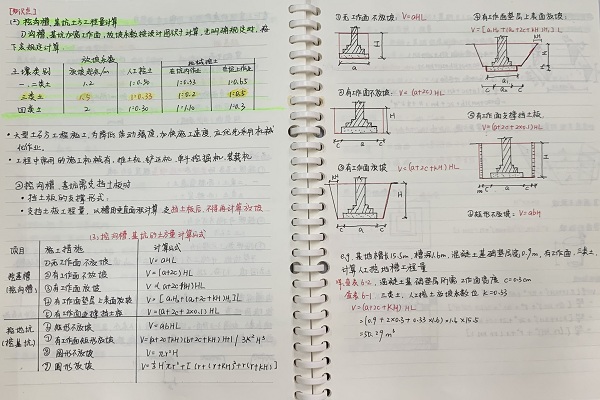 [知识点]
(2) 挖沟槽、基坑土方工程量计算
①沟槽、基坑加宽工作面,放坡系数按设计图示计算,无明确规定时,按
下表规定计算。
放坡系数
土壤类别 放坡起点/m 人工挖土 机械挖土
在坑内作业 在坑上作业
一、二类土 1.2 1:0.50 1:0.33 1:0.65
三类土 1.5 1:0.33 1:0.2 1:0.5
四类土 2 1:0.30 1:1.10 1:0.3
• 大型土石方工程施工,为降低劳动强度,加快施工速度,应优先采用机械
化作业。
• 工程中常用的施工机械有:推土机、铲运机、单斗挖掘机、装载机
②挖沟槽、基坑需支挡土板时
• 挡土板的支撑形式:
• 支挡土板工程量,以槽的垂直面积计算,支挡土板后,不得再计算放坡
(3) 挖沟槽、基坑的土方量计算公式
项目 施工措施 计算公式
挖基槽 (挖沟槽)
①无工作面不放坡 V=aHL
②有工作面不放坡 V=(a+2c)HL
③有工作面放坡 V=(a+2c+kH)HL
④有工作面垫层上表面放坡 V=[a₁H₂+(a₂+2c+kH₁)H₁]L
⑤有工作面支撑挡土板 V=(a+2c+2×0.1)HL
挖地坑 (挖基坑)
①矩形不放坡 V=abH
②有工作面矩形放坡 V=(a+2c+kH)(b+2c+kH)H+1/3K²H³
③圆形不放坡 V=πr²H
④圆形放坡
①无工作面不放坡: V=aHL
H
a
②有工作面不放坡 V=(a+2c)HL
H
c a c
③有工作面放坡 V=(a+2c+kH)HL
kH
H
c a c
④有工作面垫层上表面放坡:
V=[a₁H₂+(a₂+2c+kH₁)H₁]L
kH
⑤有工作面支撑挡土板
V=(a+2c+2×0.1)HL
c a c
⑥矩形不放坡: V=abH
e.g. 基地槽长15.5m,槽深1.6m,混凝土基础垫层宽0.9m,有工作面,三类土,
计算人工挖地槽工程量
查表6-2,混凝土基础垫层所需工作面宽度 c=0.3m
查表6-1,三类土,人工挖土放坡系数值 K=0.33
V=(a+2c+KH)HL
=(0.9+2×0.3+0.33×1.6)×1.6×15.5
=50.29m³